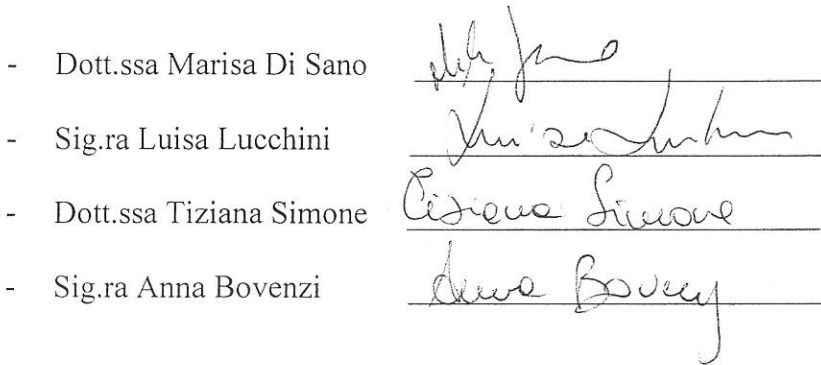 - Dott.ssa Marisa Di Sano
- Sig.ra Luisa Lucchini Luisa
- Dott.ssa Tiziana Simone Tiziana Simone
- Sig.ra Anna Bovenzi Anna